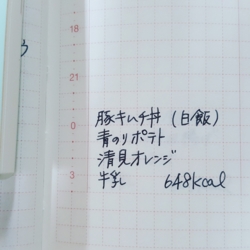 18
21
0
3
豚キムチ丼（白飯）
青のりポテト
清見オレンジ
牛乳　648kcal